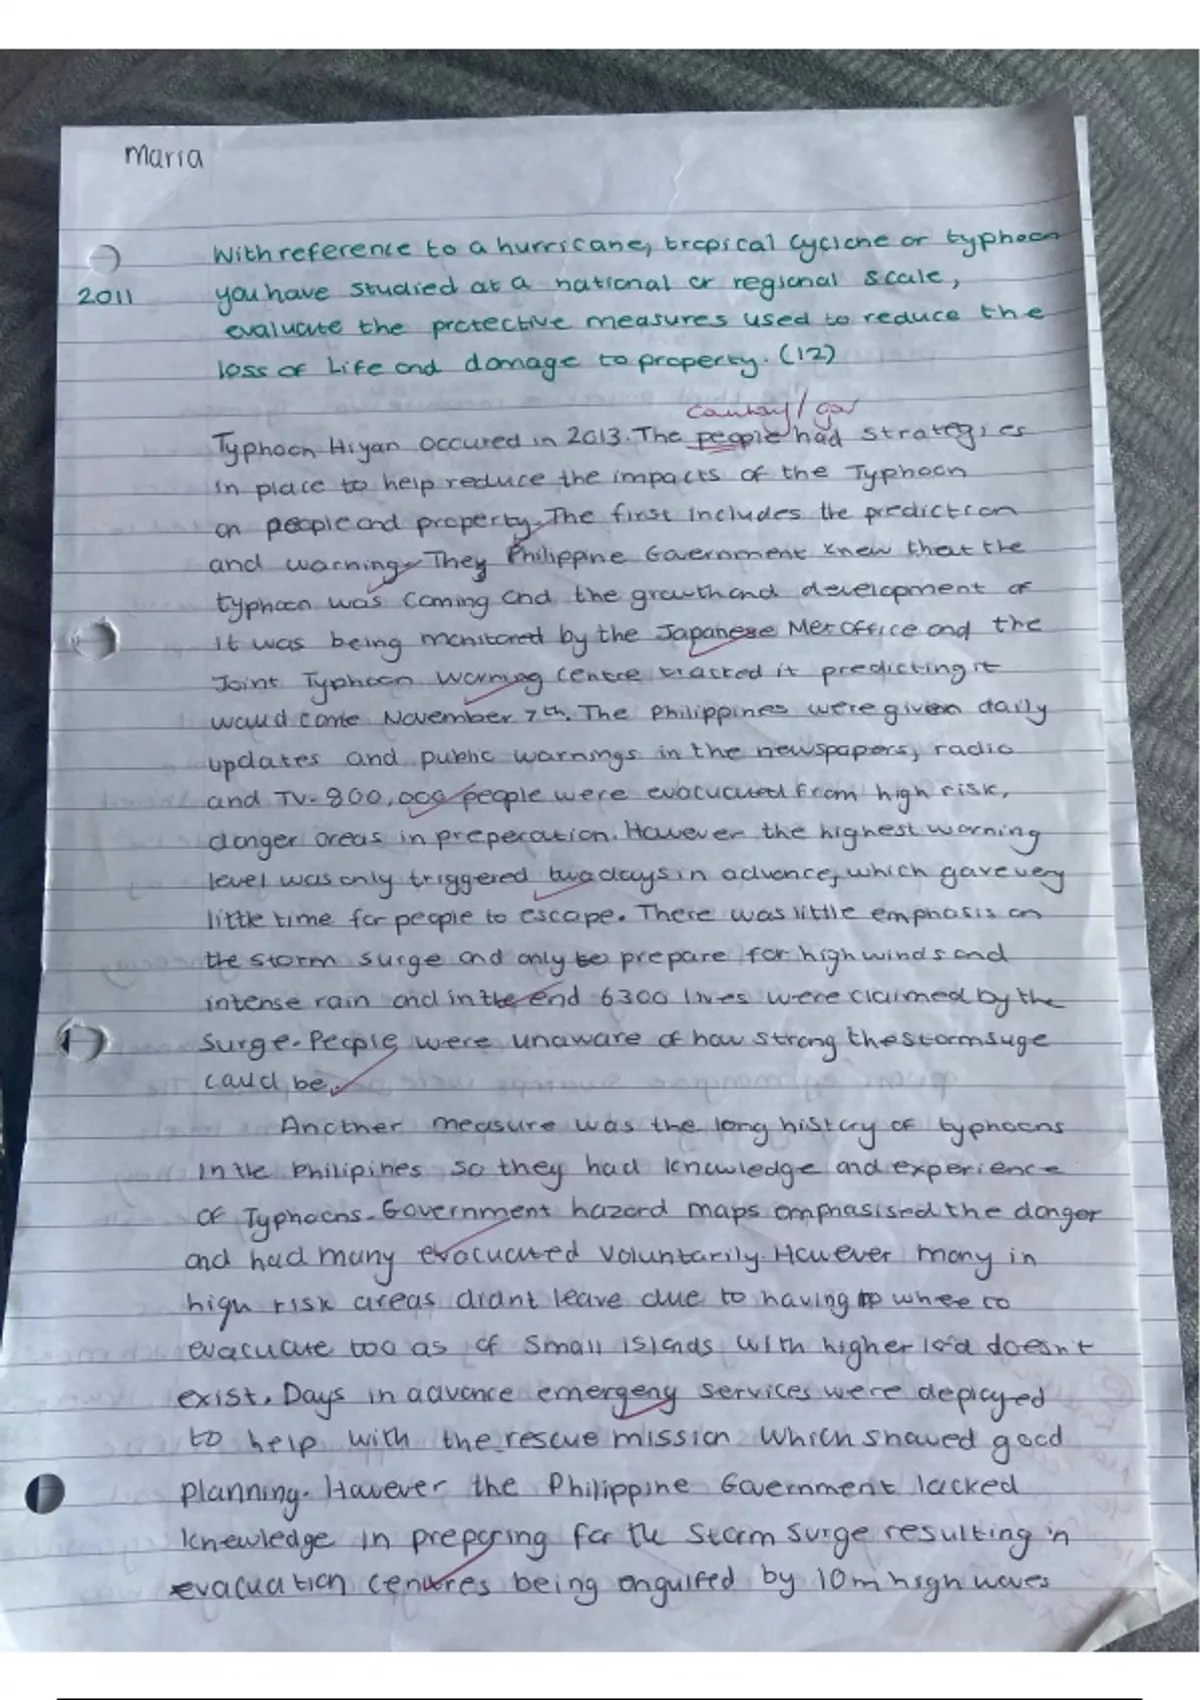 Maria
With reference to a hurricane, tropical cyclone or typhoon
2011 you have studied at a national or regional scale,
evaluate the protective measures used to reduce the
loss of life and damage to property. (12)
country/gov
Typhoon Hiyan occured in 2013. The people had strategies
in place to help reduce the impacts of the Typhoon
on people and property. The first includes the prediction
and warning. They Philippine Government knew that the
typhoon was coming and the growth and development of
it was being monitored by the Japanese Met office and the
Joint Typhoon Warning Centre tracked it predicting it
would come November 7th. The Philippines were given daily
updates and public warnings in the newspapers, radio
and TV. 800,000 people were evacuated from high risk,
danger areas in preperation. However the highest warning
level was only triggered two days in advance, which gave very
little time for people to escape. There was little emphasis on
the storm surge and only to prepare for high winds and
intense rain and in the end 6300 lives were claimed by the
surge. People were unaware of how strong the storm suge
could be.
Another measure was the long history of typhoons
in the Philipines so they had knowledge and experience
of Typhoons. Government hazard maps emphasised the danger
and had many evacuated voluntarily. However many in
high risk areas didnt leave due to having no where to
evacuate too as of small islands with higher land doesn't
exist. Days in advance emergeny services were deployed
to help with the rescue mission which showed good
planning. However the Philippine Government lacked
knowledge in preparing for the storm surge resulting in
evacuation centres being engulfed by 10m high waves